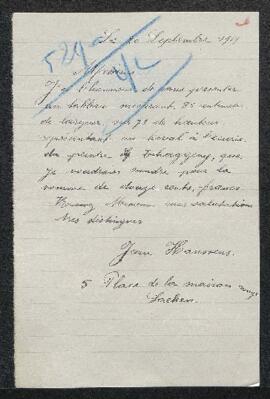 Le 20 Septembre 1919
529a
Monsieur
J'ai l'honneur de vous présenter
un tableau mesurant 85 centimes
de largeur, sur 78 de hauteur
représentant un cheval à l'écurie
du peintre Tschaggeny, que
je voudrais vendre pour la
somme de douze cents francs
Recevez Monsieur mes salutations
très distinguées
Jean Hanssens
5 Place de la maison rouge
Laeken.